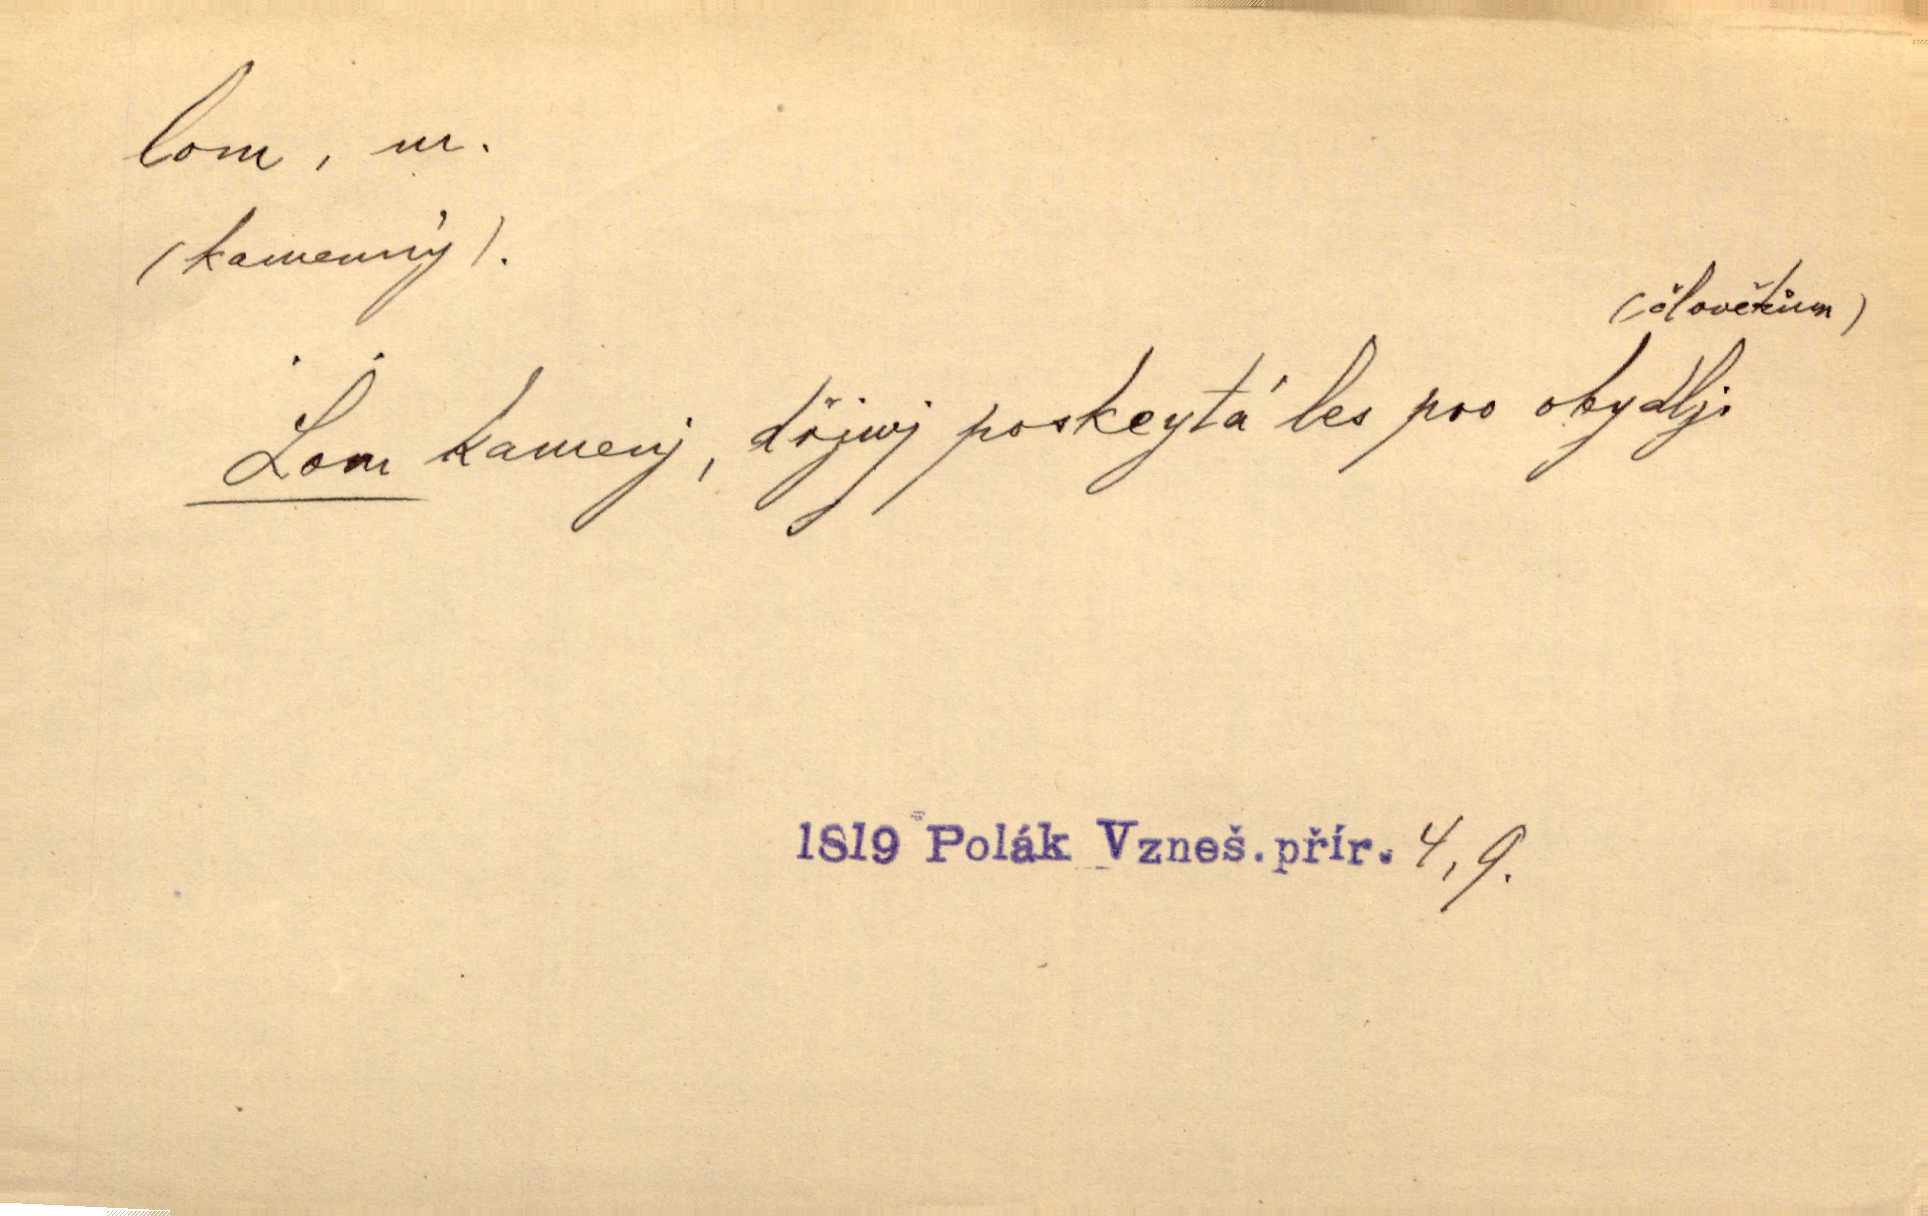 lom, m.
(kamenný).
(člověkům)
Lom kamenj, dřjwj poskeytá les pro obydlj.
1819 Polák Vzneš.přír. 4, 9.